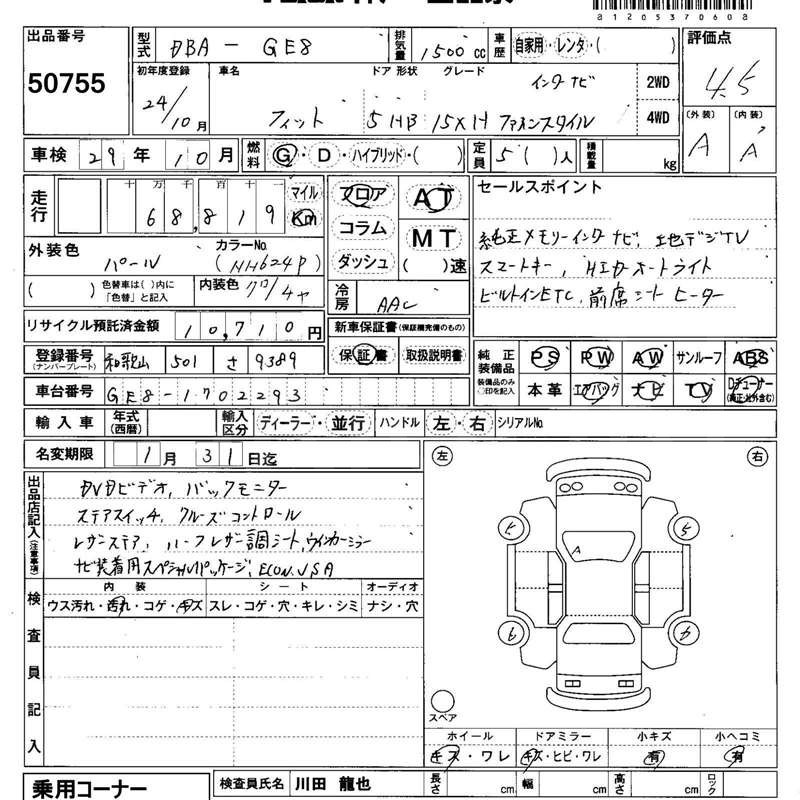 a1205370608
出品番号 型式 DBA - GE8 排気量 1500 cc 車歴 自家用・レンタ・( ) 評価点
50755 4.5
初年度登録 車名 ドア 形状 グレード インタナビ 2WD
24/10月 フィット 5 HB 15XH ファインスタイル 4WD
(外装) (内装)
A A
車検 29年 10月 燃料 G・D・ハイブリッド・( ) 定員 5( )人 積載量 kg
走行 十 万 千 百 十 一 マイル フロア AT セールスポイント
68,819 Km
コラム MT 純正メモリーインターナビ, 地デジTV
外装色 カラーNo. ダッシュ ( )速 スマートキー, HIDオートライト
パール (NH624P) ビルトインETC, 前席シートヒーター
( ) 色替車は( )内に「色替」と記入 内装色 クロ/チャ 冷房 AAC
リサイクル預託済金額 10,710円 新車保証書(保証継続備のもの)
登録番号 (ナンバープレート) 和歌山 501 さ 9389 保証書 取扱説明書 純正装備品 PS PW AW サンルーフ ABS
車台番号 GE8-1702293 装備品のみ○印を記入 本革 エアバッグ ナビ TV Dチューナー(純正・社外含む)
輸入車 年式(西暦) 輸入区分 ディーラー・並行 ハンドル 左・右 シリアルNo.
名変期限 1月 31日迄
左 右
出品店記入(注意事項) DVDビデオ, バックモニター
ステアスイッチ, クルーズコントロール
レザーステア, ハーフレザー調シート, ウインカーミラー
ナビ装着用スペシャルパッケージ, ECON, VSA
A
5 5
6 6
検査員記入 内装 シート オーディオ
ウス汚れ・汚れ・コゲ・キズ スレ・コゲ・穴・キレ・シミ ナシ・穴
スペア
ホイール ドアミラー 小キズ 小ヘコミ
キズ・ワレ キズ・ヒビ・ワレ 有 有
乗用コーナー 検査員氏名 川田 龍也 長さ cm 幅 cm 高さ cm ロック